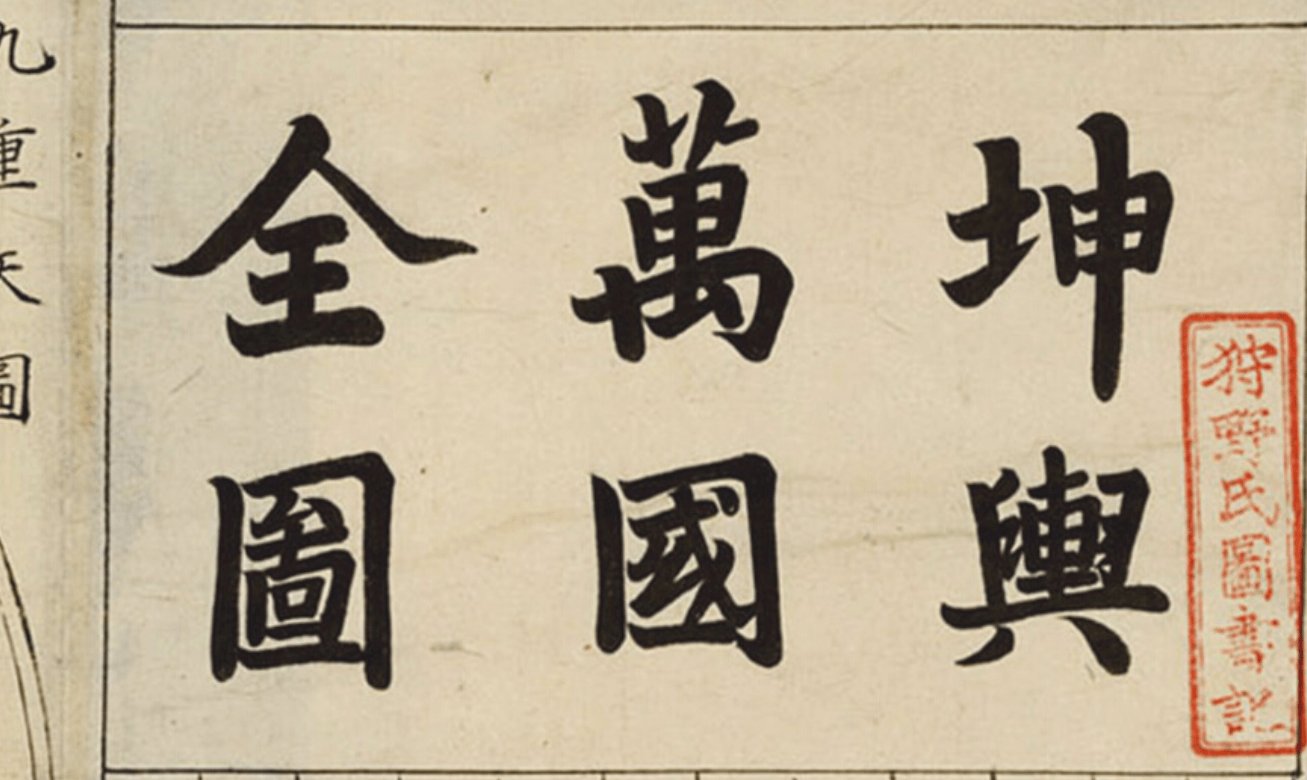 狩野氏圖書記
坤輿
萬國
全圖
九重天圖